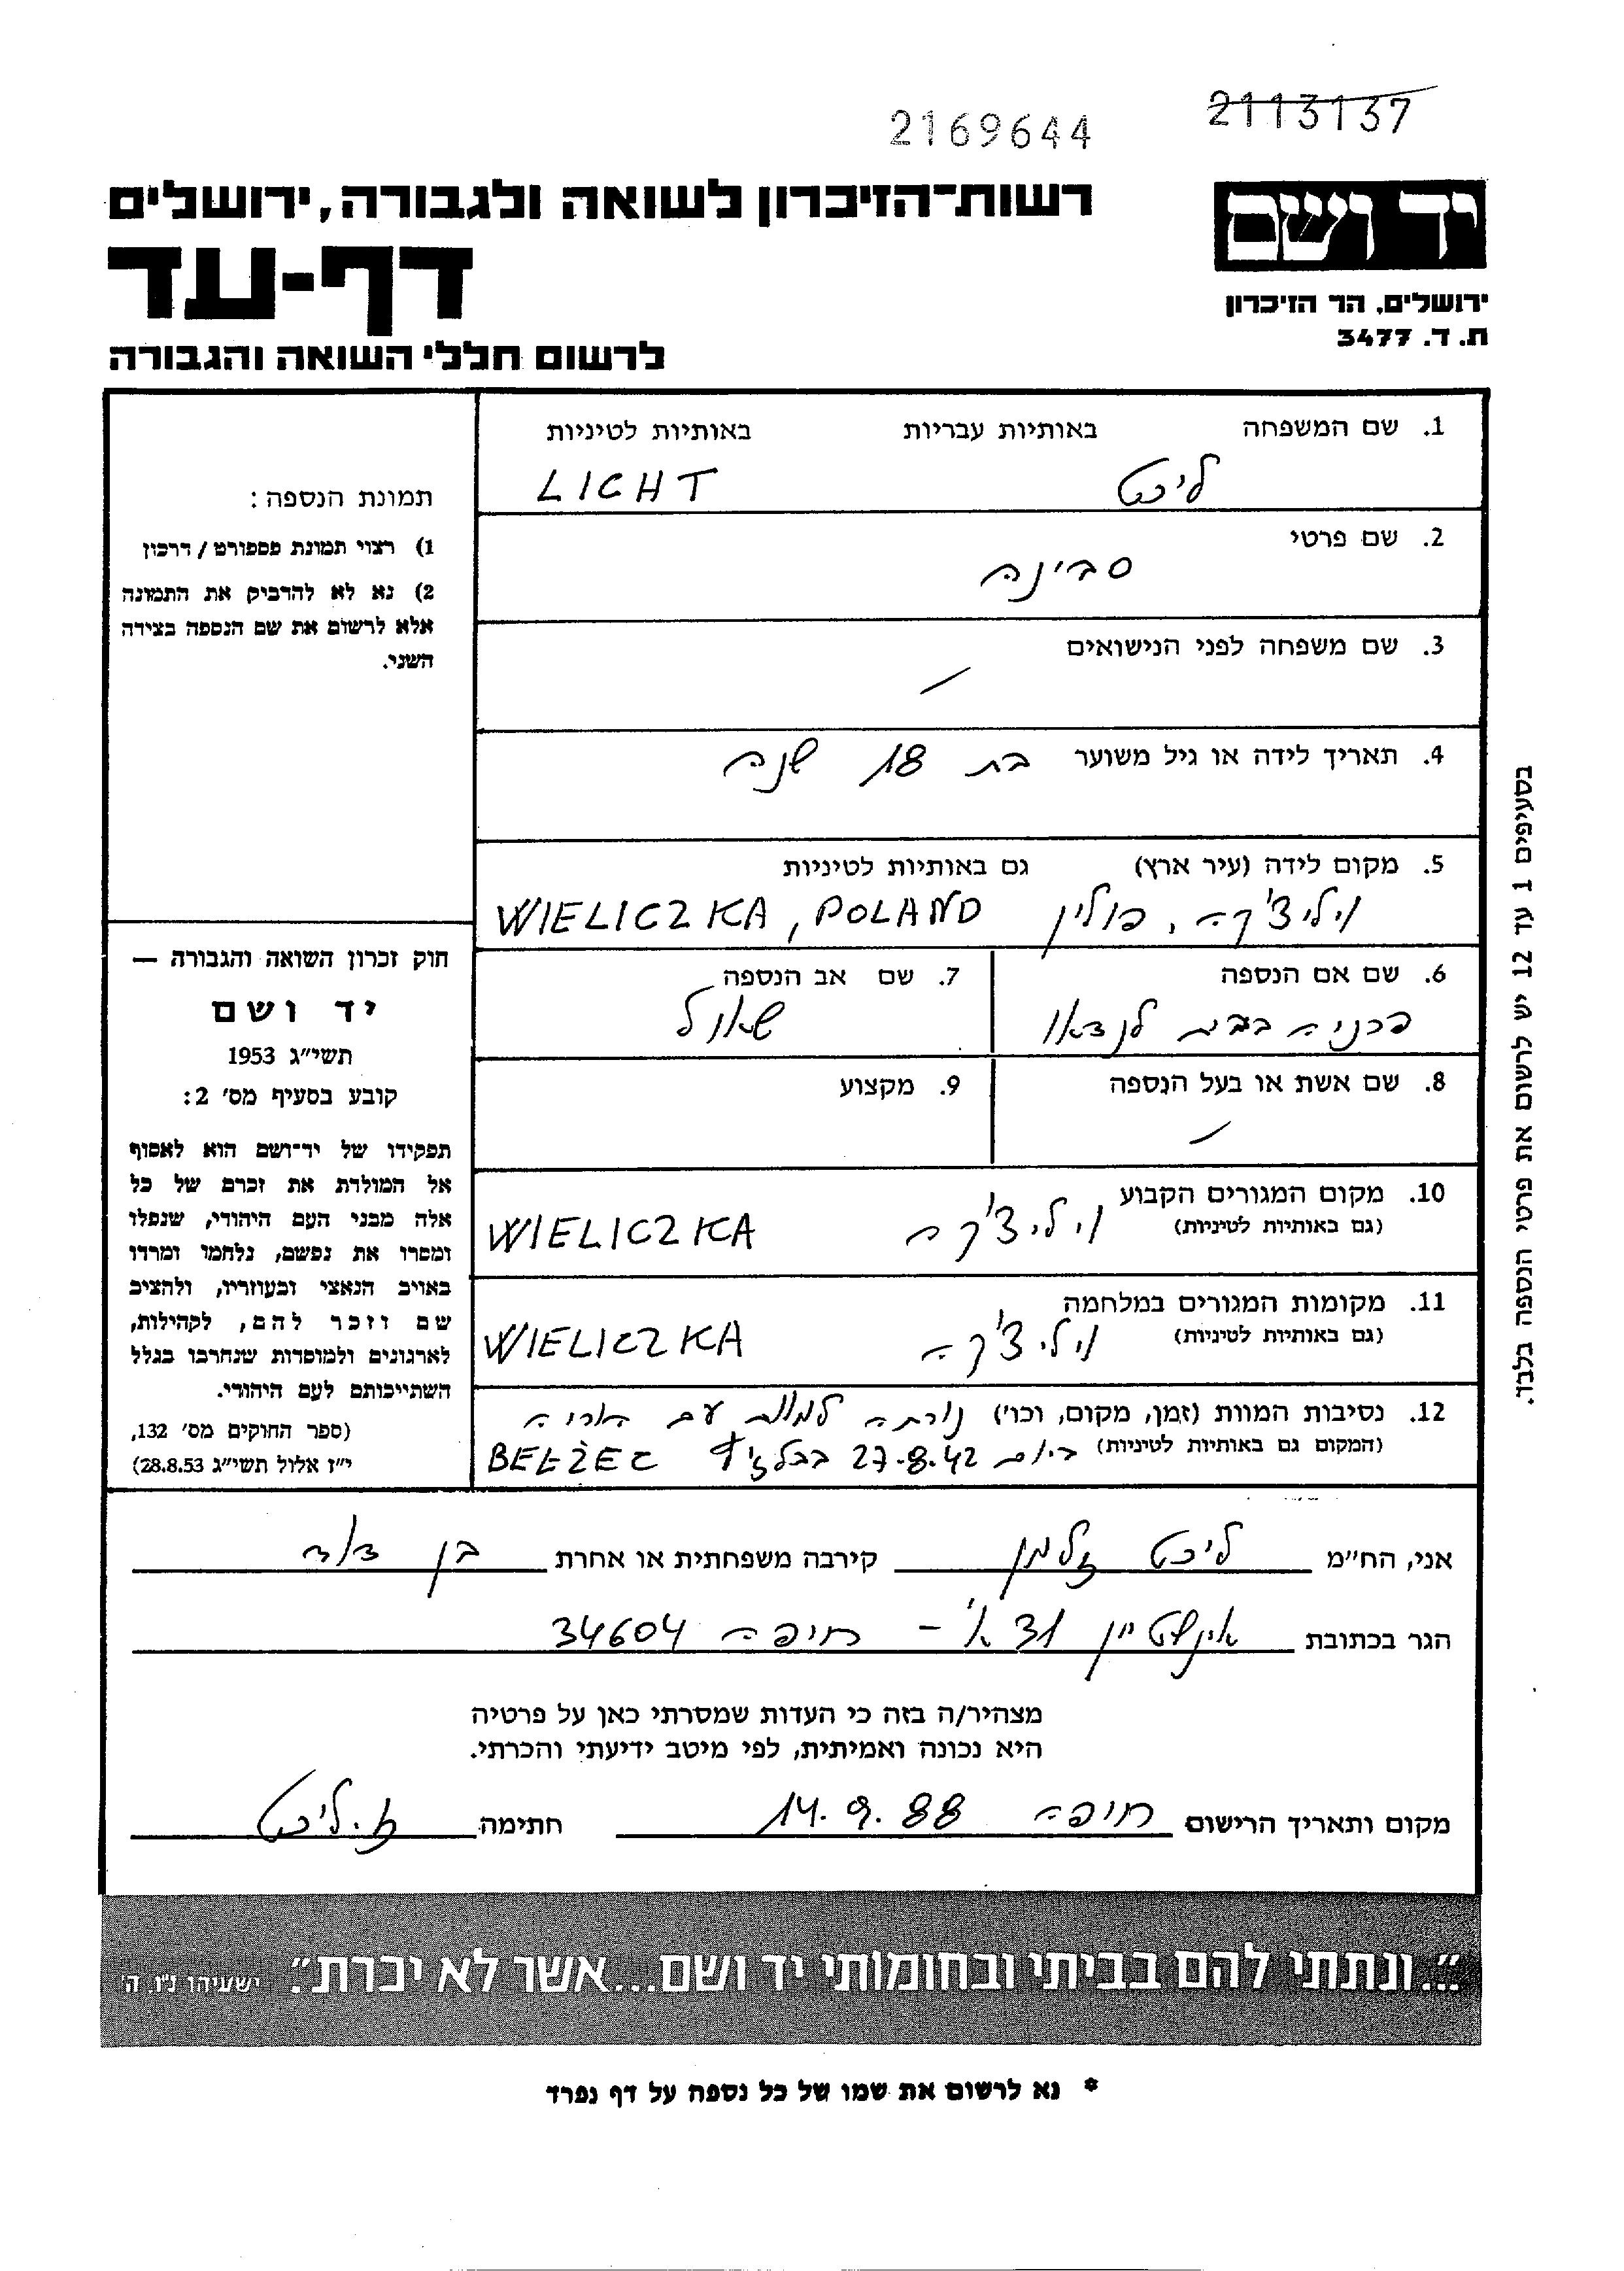 2169644
2113137
יד ושם
ירושלים, הר הזיכרון
ת. ד. 3477
רשות־הזיכרון לשואה ולגבורה, ירושלים
דף-עד
לרשום חללי השואה והגבורה
1. שם המשפחה באותיות עבריות באותיות לטיניות
ליכט LICHT
2. שם פרטי
סבינה
3. שם משפחה לפני הנישואים
/
4. תאריך לידה או גיל משוער בת 18 שנה
5. מקום לידה (עיר ארץ) גם באותיות לטיניות
ויליצ'קה, פולין WIELICZKA, POLAND
6. שם אם הנספה
לנדאו
7. שם אב הנספה
שאול
8. שם אשת או בעל הנספה
/
9. מקצוע
10. מקום המגורים הקבוע
(גם באותיות לטיניות) ויליצ'קה WIELICZKA
11. מקומות המגורים במלחמה
(גם באותיות לטיניות) ויליצ'קה WIELICZKA
12. נסיבות המוות (זמן, מקום, וכו') נורתה למוות עם
(המקום גם באותיות לטיניות) ביום 27.8.42 BEŁŻEC
תמונת הנספה:
1) רצוי תמונת פספורט / דרכון
2) נא לא להדביק את התמונה
אלא לרשום את שם הנספה בצידה
השני.
חוק זכרון השואה והגבורה —
יד ושם
תשי״ג 1953
קובע בסעיף מס׳ 2:
תפקידו של יד־ושם הוא לאסוף
אל המולדת את זכרם של כל
אלה מבני העם היהודי, שנפלו
ומסרו את נפשם, נלחמו ומרדו
באויב הנאצי ובעוזריו, ולהציב
שם וזכר להם, לקהילות,
לארגונים ולמוסדות שנחרבו בגלל
השתייכותם לעם היהודי.
(ספר החוקים מס׳ 132,
י״ז אלול תשי״ג 28.8.53)
בסעיפים 1 עד 12 יש לרשום את פרטי הנספה בלבד.
אני, הח״מ ליכט זלמן קירבה משפחתית או אחרת בן דוד
הגר בכתובת אינשטיין 31 א' - חיפה 34604
מצהיר/ה בזה כי העדות שמסרתי כאן על פרטיה
היא נכונה ואמיתית, לפי מיטב ידיעתי והכרתי.
מקום ותאריך הרישום חיפה 14.9.88 חתימה ז. ליכט
״...ונתתי להם בביתי ובחומותי יד ושם...אשר לא יכרת״. ישעיהו נ״ו, ה'
* נא לרשום את שמו של כל נספה על דף נפרד